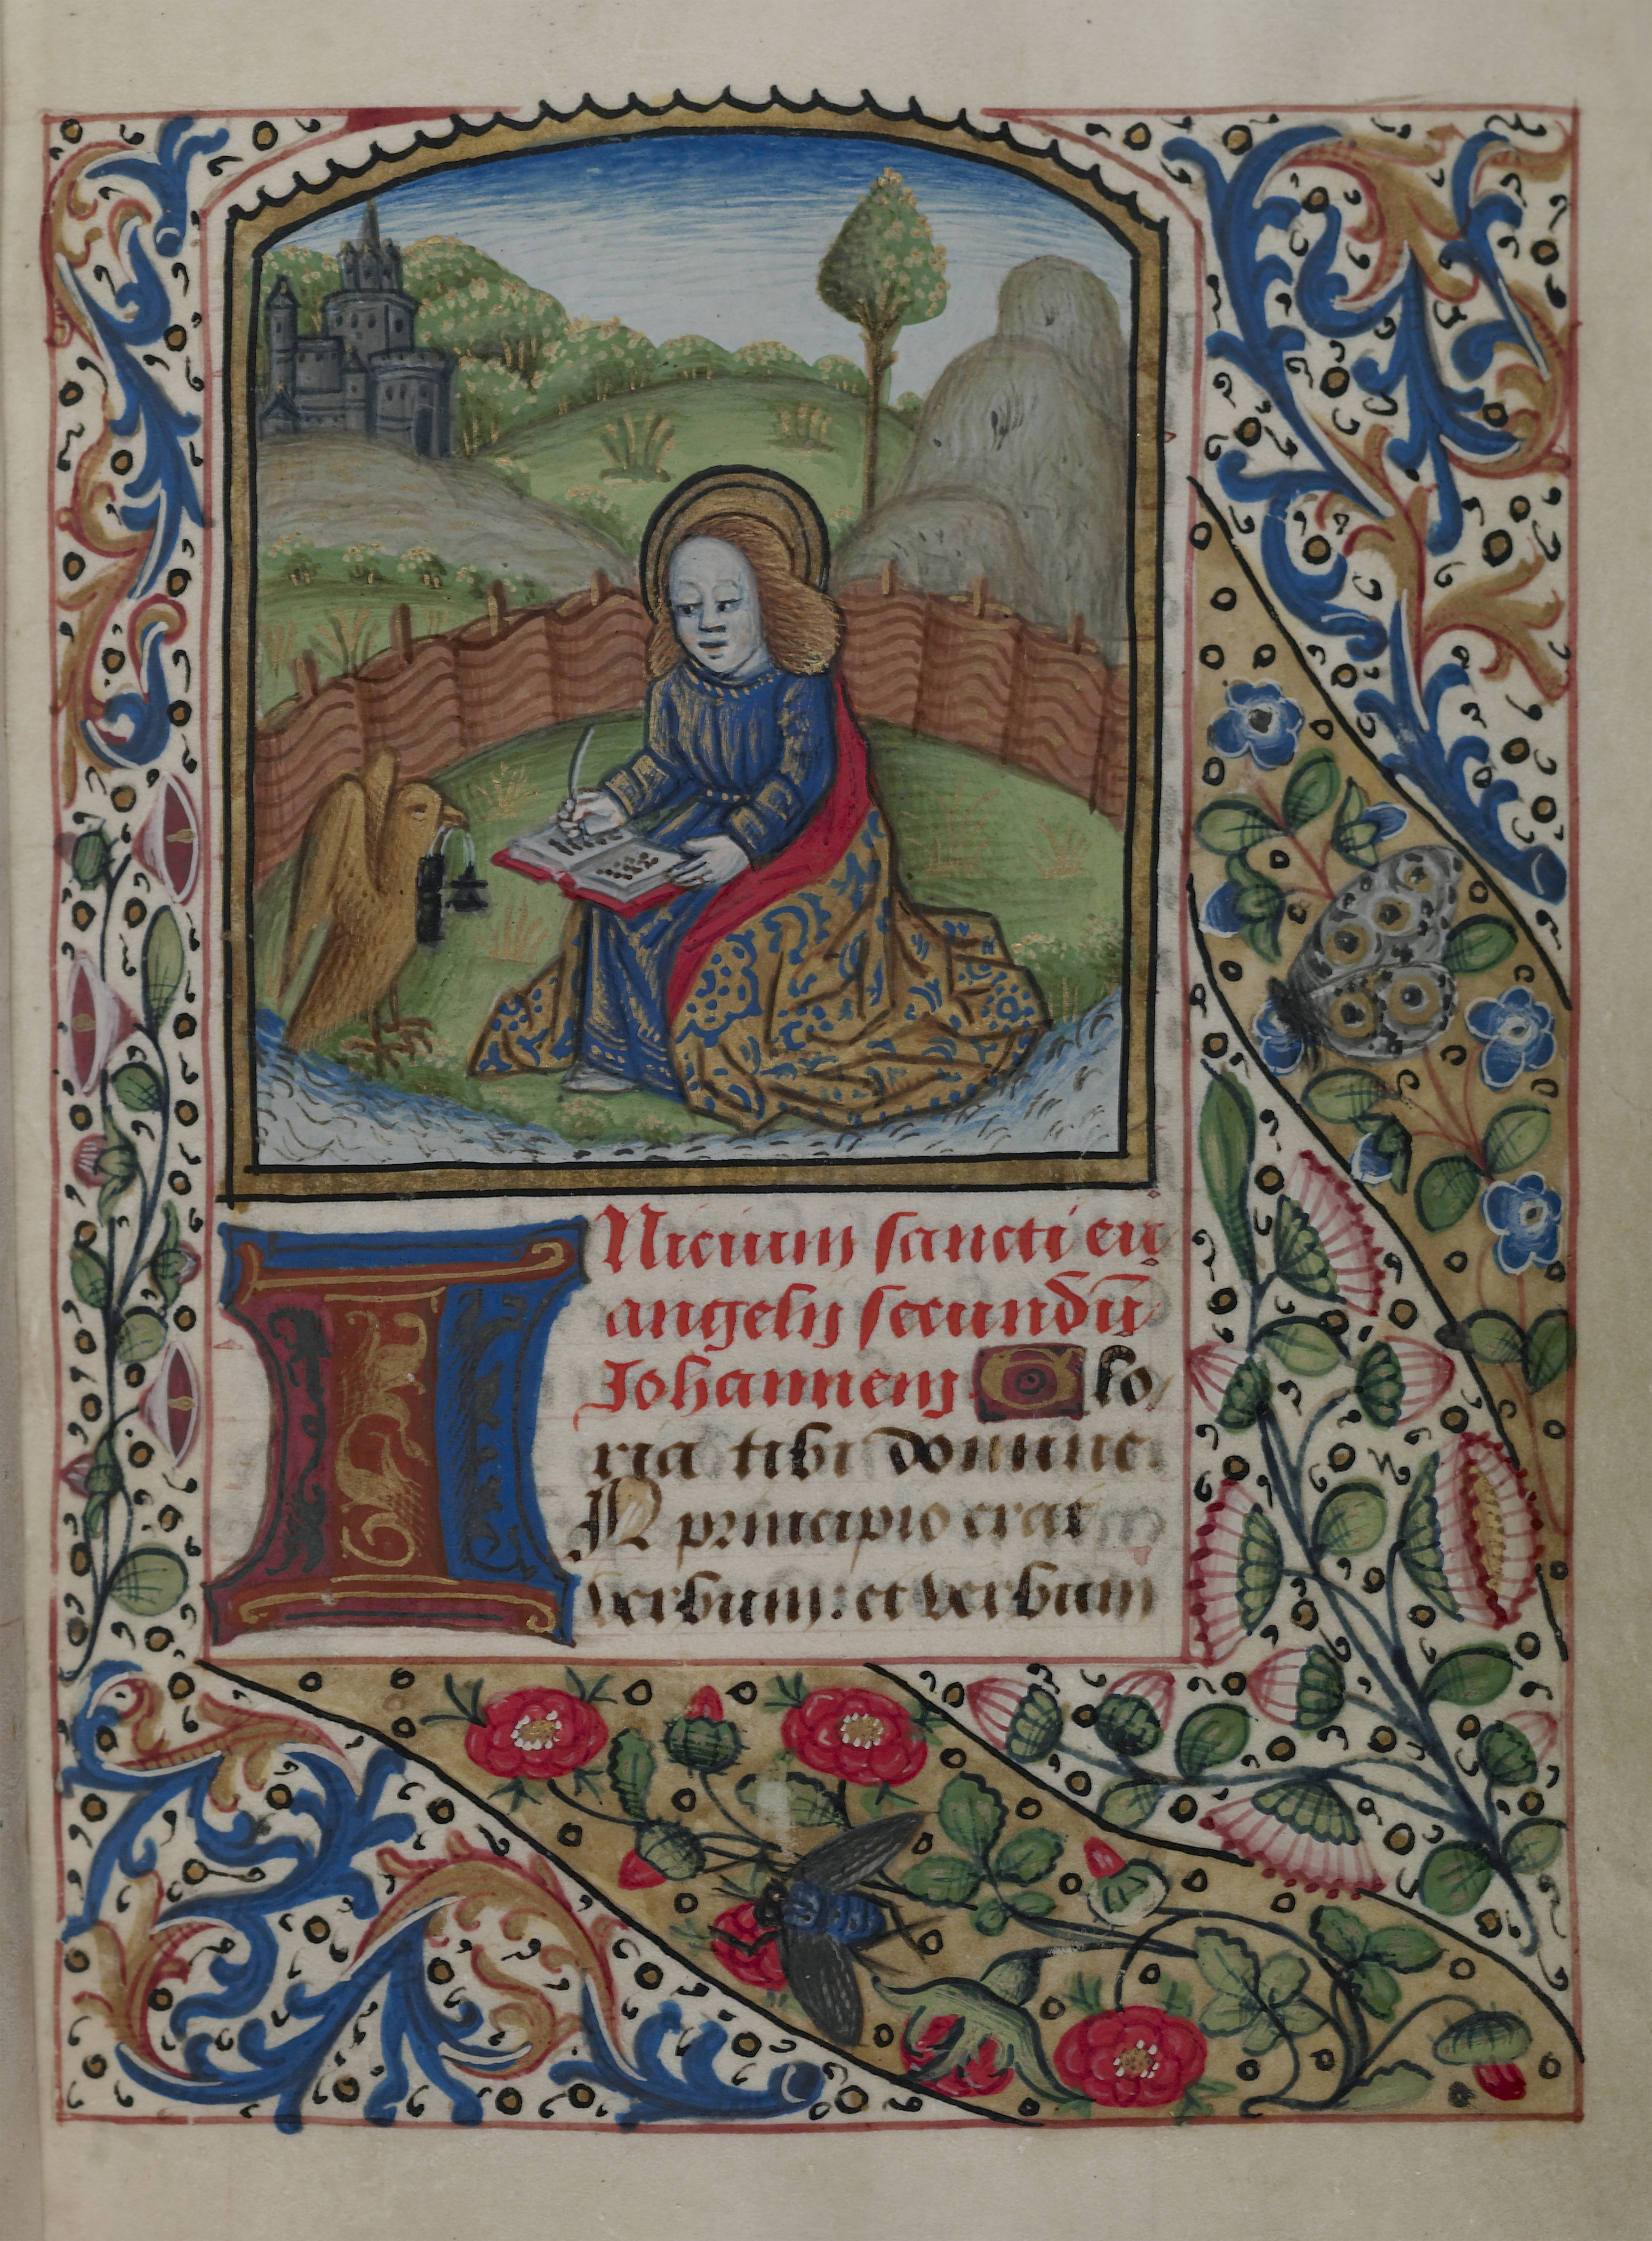 INicium sancti eu
angelij secundū
Johannem Glo
ria tibi domine.
IN principio erat
verbum: et verbum